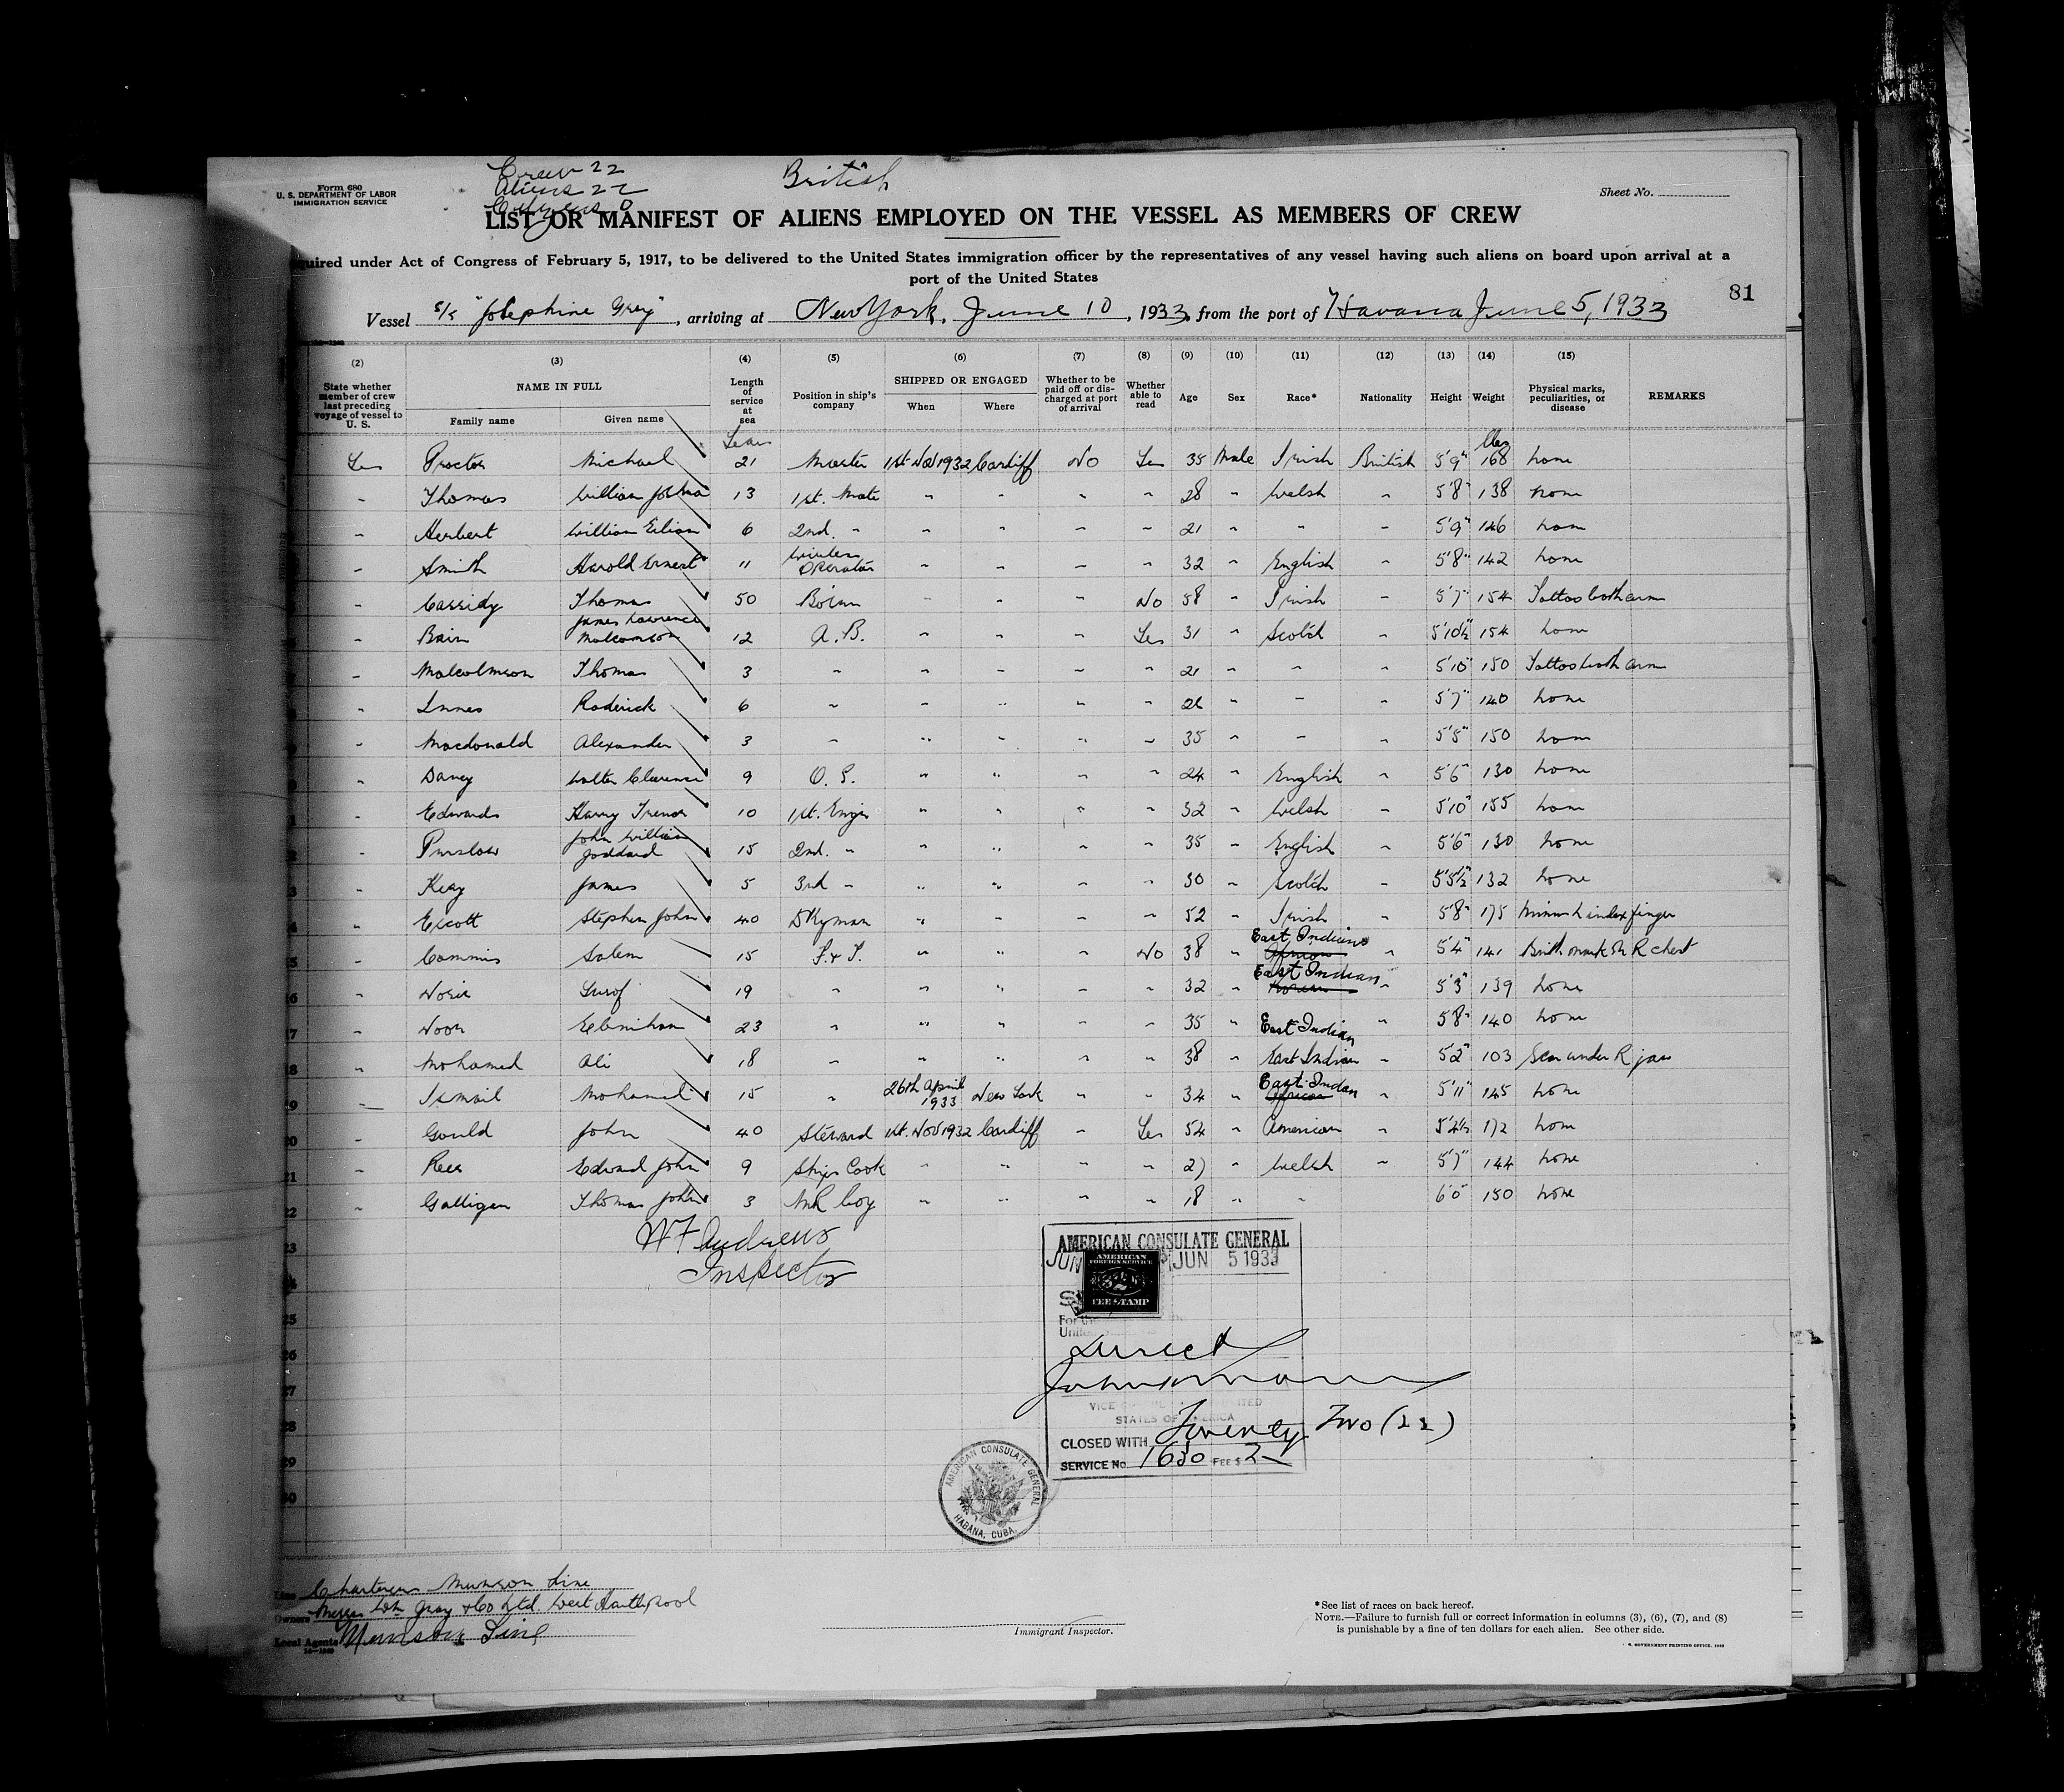 Form 680
U. S. DEPARTMENT OF LABOR
IMMIGRATION SERVICE
Crew 22
Aliens 22
Citizens 0
British
Sheet No.
LIST OR MANIFEST OF ALIENS EMPLOYED ON THE VESSEL AS MEMBERS OF CREW
quired under Act of Congress of February 5, 1917, to be delivered to the United States immigration officer by the representatives of any vessel having such aliens on board upon arrival at a
port of the United States
81
Vessel s/s "Josephine Gray", arriving at New York, June 10, 1933, from the port of Havana June 5, 1933
(2) (3) (4) (5) (6) (7) (8) (9) (10) (11) (12) (13) (14) (15)
State whether member of crew last preceding voyage of vessel to U. S. NAME IN FULL Family name Given name Length of service at sea Position in ship's company SHIPPED OR ENGAGED When Where Whether to be paid off or discharged at port of arrival Whether able to read Age Sex Race* Nationality Height Weight Physical marks, peculiarities, or disease REMARKS
Years lbs
Yes Proctor Michael 21 Master 1st Nov 1932 Cardiff No Yes 35 Male Irish British 5'9" 168 none
" Thomas William Joshua 13 1st. Mate " " " " 28 " Welsh " 5'8" 138 none
" Herbert William Eilian 6 2nd. " " " " " 21 " " " 5'9" 146 none
" Smith Harold Ernest 11 Wireless Operator " " " " 32 " English " 5'8" 142 none
" Cassidy Thomas 50 Bosun " " " No 58 " Irish " 5'7" 154 Tattoo both arm
" Bain James Lawrence Malcomson 12 A.B. " " " Yes 31 " Scotch " 5'10½" 154 none
" Malcolmson Thomas 3 " " " " " 21 " " " 5'10" 150 Tattoo both arm
" Innes Roderick 6 " " " " " 26 " " " 5'7" 140 none
" Macdonald Alexander 3 " " " " " 35 " " " 5'5" 150 none
" Davey Walter Clarence 9 O.S. " " " " 24 " English " 5'6" 130 none
" Edwards Harry Trevor 10 1st. Engr " " " " 32 " Welsh " 5'10" 155 none
" Purslow John William Goddard 15 2nd. " " " " " 35 " English " 5'6" 130 none
" Keay James 5 3rd " " " " " 30 " Scotch " 5'5½" 132 none
" Escott Stephen John 40 Dkyman " " " " 52 " Irish " 5'8" 175 Minus L index finger
" Commis Salem 15 F.&T. " " " No 38 " East Indian African " 5'4" 141 Birth mark on R chest
" Nosir Yusof 19 " " " " " 32 " East Indian " 5'3" 139 none
" Noor 23 " " " " " 35 " East Indian " 5'8" 140 none
" Mohamed Ali 18 " " " " " 38 " East Indian " 5'2" 103 Scar under R jaw
" Ismail Mohamed 15 " 26th April 1933 New York " " 34 " East Indian African " 5'11" 145 none
" Gould John 40 Steward 1st. Nov 1932 Cardiff " Yes 54 " American " 5'4½ 172 none
" Rees Edward John 9 Ships Cook " " " " 27 " Welsh " 5'7" 144 none
" Galligan Thomas John 3 M.R. boy " " " " 18 " " 6'0" 150 none
W F Andrews
Inspector
AMERICAN CONSULATE GENERAL
JUN JUN 5 1933
AMERICAN
FOREIGN SERVICE
$2
FEE STAMP
For the
United
Direct
VICE
STATES OF AMERICA
CLOSED WITH Twenty Two (22)
SERVICE No 1630 FEE $ 2—
AMERICAN CONSULATE GENERAL
HABANA, CUBA.
Line Charterers Munson Line
Owners Messrs Wm Gray & Co Ltd. West Hartlepool
Local Agents Munson Line
Immigrant Inspector.
*See list of races on back hereof.
NOTE.—Failure to furnish full or correct information in columns (3), (6), (7), and (8)
is punishable by a fine of ten dollars for each alien. See other side.